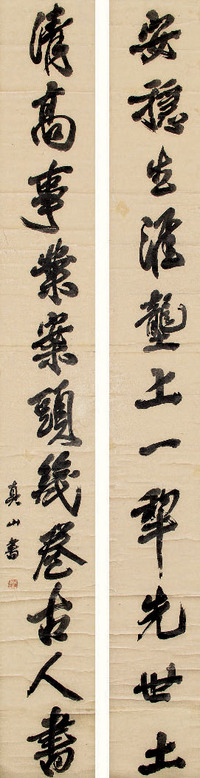 安穩生涯壟上一犂先世土
清高事業案頭幾卷古人書
真山書